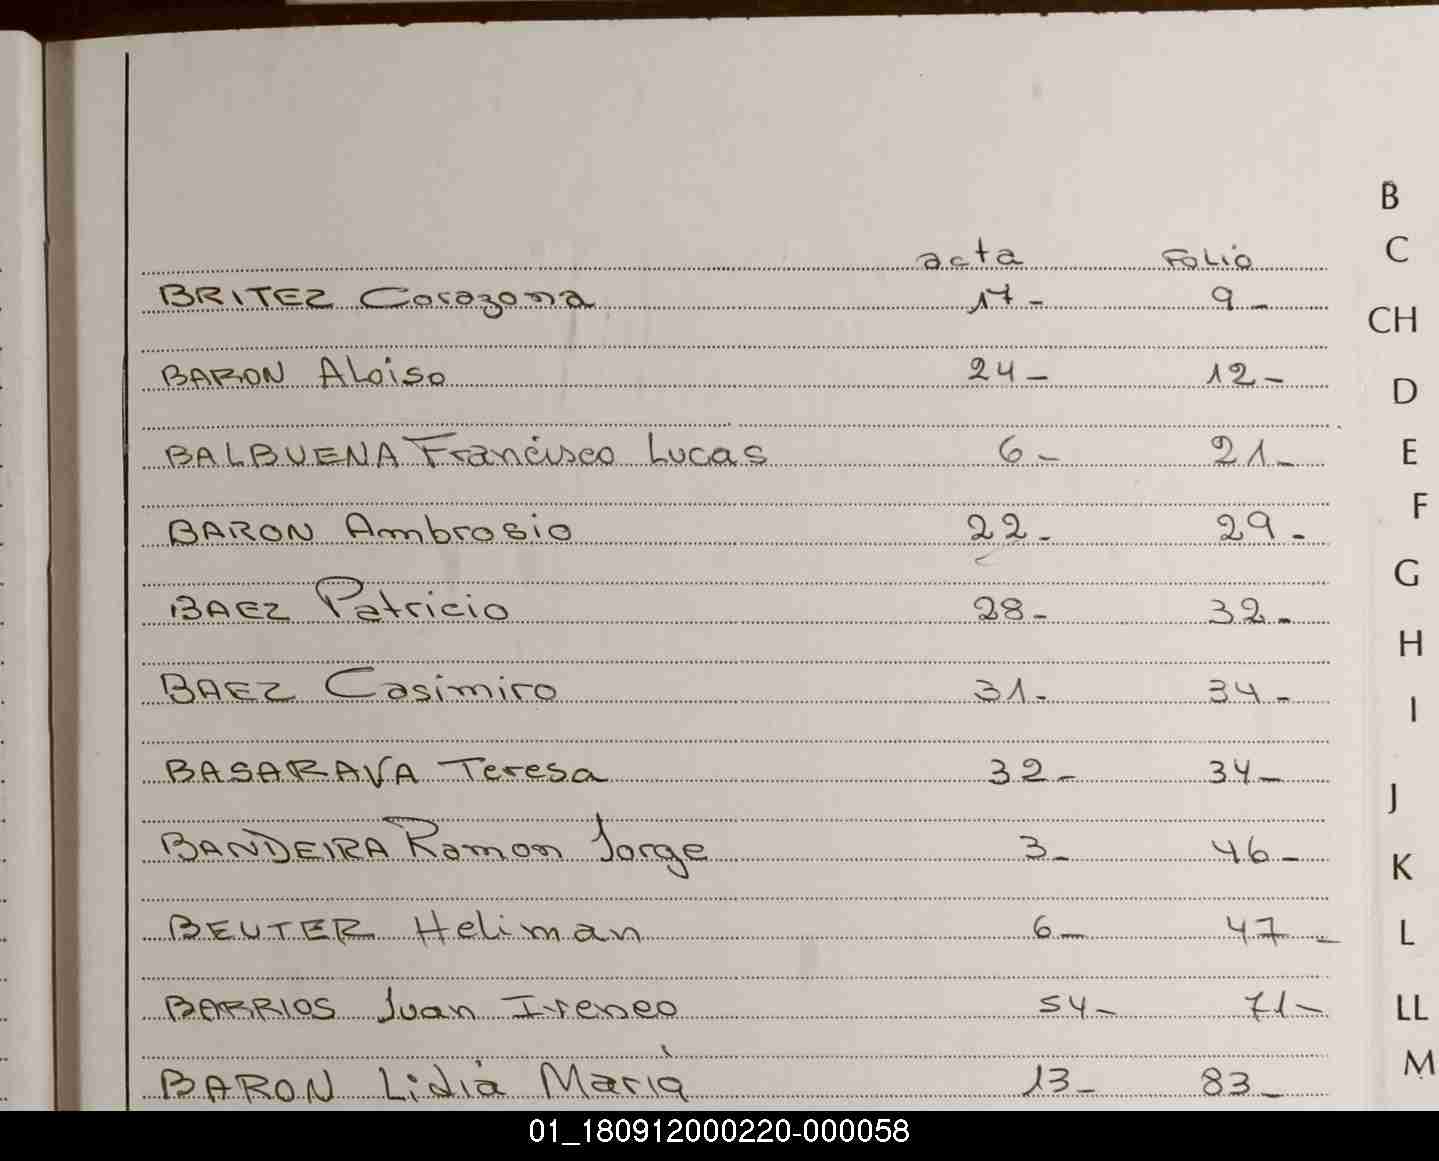 acta Folio
BRITEZ Corazona 17- 9-
BARON Aloiso 24- 12-
BALBUENA Francisco Lucas 6- 21-
BARON Ambrosio 22- 29-
BAEZ Patricio 28- 32-
BAEZ Casimiro 31- 34-
BASARAVA Teresa 32- 34-
BANDEIRA Ramon Jorge 3- 46-
BEUTER Heliman 6- 47-
BARRIOS Juan Ireneo 54- 71-
BARON Lidia Maria 13- 83-
B
C
CH
D
E
F
G
H
I
J
K
L
LL
M
01_180912000220-000058